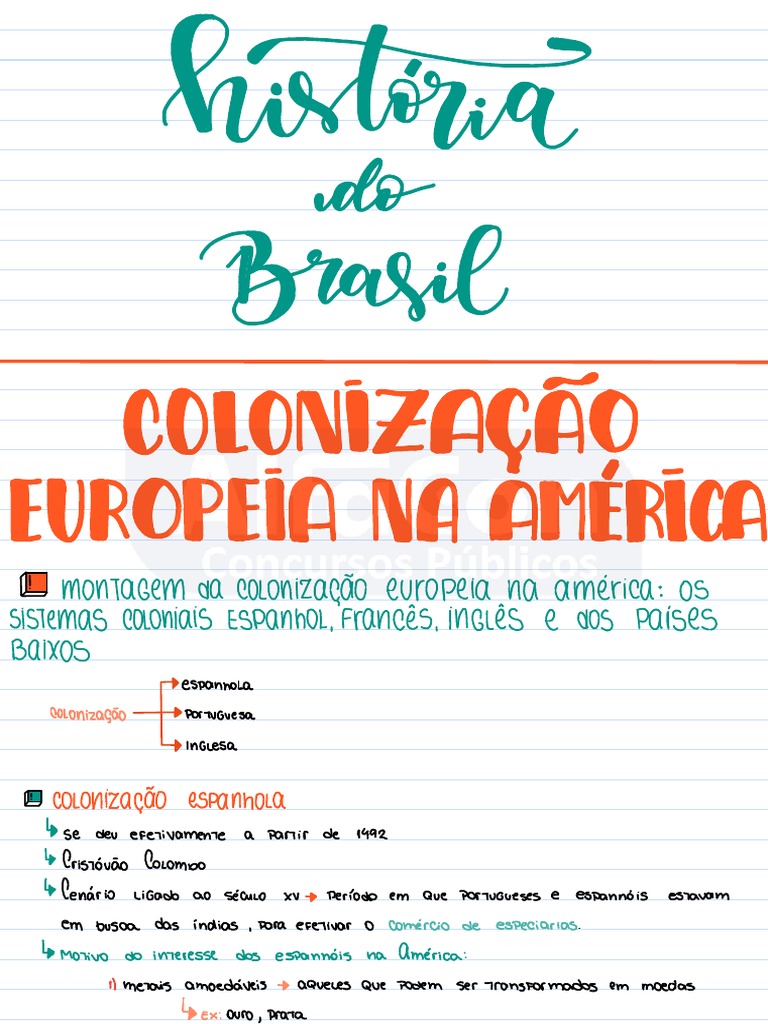 história
do
Brasil
COLONIZAÇÃO
EUROPEIA NA AMÉRICA
AlfaCon
Concursos Públicos
montagem da colonização europeia na américa: os
sistemas coloniais espanhol, francês, inglês e dos países
baixos
espanhola
colonização
portuguesa
inglesa
colonização espanhola
se deu efetivamente a partir de 1492
Cristóvão Colombo
Cenário ligado ao século XV → período em que portugueses e espanhóis estavam
em busca das índias, para efetivar o comércio de especiarias.
motivo do interesse dos espanhóis na América:
1) metais amoedáveis → aqueles que podem ser transformados em moedas
ex: ouro, prata